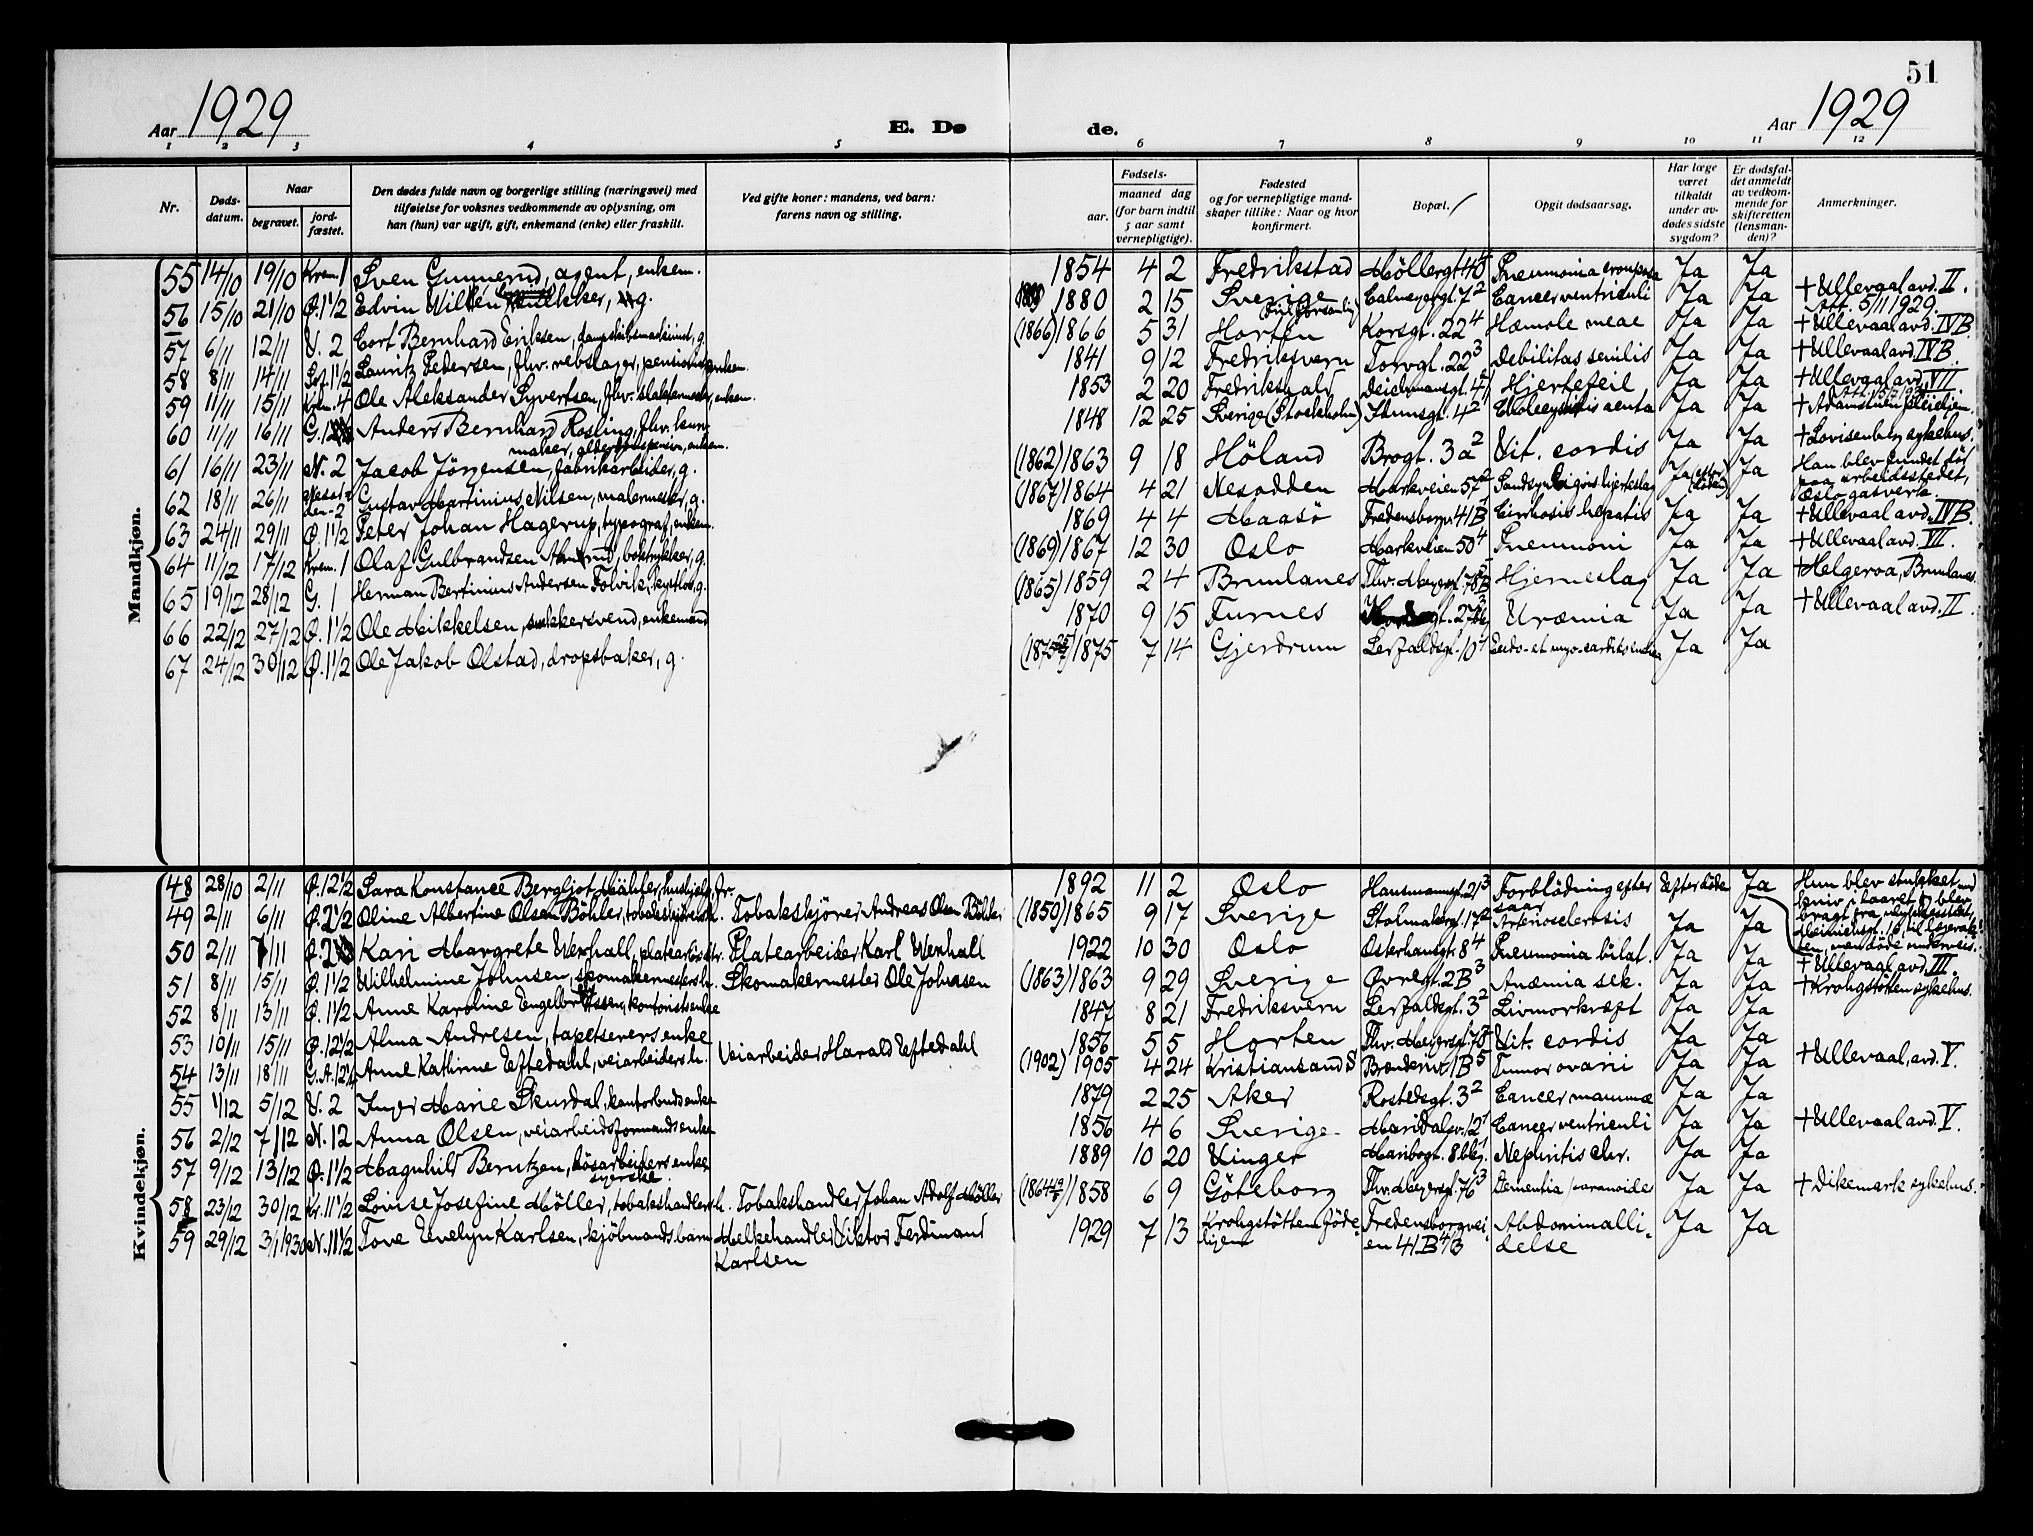 51
Aar 1929 E. Døde. Aar 1929
1 2 3 4 5 6 7 8 9 10 11 12
Nr. Døds-datum. Naar begravet. jord-fæstet. Den dødes fulde navn og borgerlige stilling (næringsvei) med tilføielse for voksnes vedkommende av oplysning, om han (hun) var ugift, gift, enkemand (enke) eller fraskilt. Ved gifte koner: mandens, ved barn: farens navn og stilling. Fødsels- aar. maaned dag (for barn indtil 5 aar samt vernepligtige). Fødested og for vernepligtige mand-skaper tillike: Naar og hvor konfirmert. Bopæl. Opgit dødsaarsag. Har læge været tilkaldt under av-dødes sidste sygdom? Er dødsfal-det anmeldt av vedkom-mende for skifteretten (lensman-den)? Anmerkninger.
Mandkjøn.
55 14/10 19/10 Krem. 1 Sven Gunnerud, agent, enkem. 1854 4 2 Fredrikstad Möllergt. Pneumonia crouposa Ja Ja
56 15/10 21/10 Ø. 1 1/2 Edvin g. 1880 2 15 Sverige Calmeyergt. 7 2 Cancer ventriculi Ja Ja + Ullevaal avd. II. Att. 5/11 1929.
57 6/11 12/11 V. 2 Cort Bernhard Eriksen, g. (1866) 1866 5 31 Horten Korsgt. 22 4 Ja Ja + Ullevaal avd. IV B.
58 8/11 14/11 1 1/2 Lauritz Pedersen, fhv. rebslager, pensionist, enkem. 1841 9 12 Fredriksvern Torvgt. 22 3 Debilitas senilis Ja Ja + Ullevaal avd. IV B.
59 11/11 15/11 Krem. 4 Ole Aleksander Syvertsen, fhv. slaktermester, enkem. 1853 2 20 Fredrikshald Deichmansgt. Hjertefeil Ja Ja + Ullevaal avd. VII.
60 11/11 16/11 G. Anders Bernhard Rosling, fhv. maler, enkem. 1848 12 25 Sverige (Stockholm) Stensgt. 4 2 acuta Ja Ja + Adamstuen pleiehjem.
61 16/11 23/11 N. 2 Jacob Jörgensen, fabrikarbeider, g. (1862) 1863 9 18 Höland Brogt. 3 a 2 Vit. cordis Ja Ja + Lovisenberg sykehus.
62 18/11 26/11 2 Gustav Martinius Nilsen, malermester, g. (1867) 1864 4 21 Nesodden Markveien 57 2 Sandsynligvis hjerteslag Ja (efter döden) Ja Han blev fundet död paa arbeidsstedet, Oslo gasverk.
63 24/11 29/11 Ø. 1 1/2 Peter Johan Hagerup, typograf, enkem. 1869 4 4 Maasö Fredensborgv. 41 B Cirrhosis hepatis Ja Ja + Ullevaal avd. IV B.
64 11/12 17/12 Krem. 1 Olaf Gulbrandsen boktrykker, g. (1869) 1867 12 30 Oslo Markveien 50 4 Pneumoni Ja Ja + Ullevaal avd. VII.
65 19/12 28/12 G. 1 Herman Bertinius Andersen Folvik, kystlos, g. (1865) 1859 2 4 Brunlanes Thv. Meyersgt. 78 B Hjerneslag Ja Ja + Helgeroa, Brunlanes.
66 22/12 27/12 Ø. 1 1/2 Ole Mikkelsen, snekkersvend, enkemand 1870 9 15 Furnes Uræmia Ja Ja + Ullevaal avd. II.
67 24/12 30/12 Ø. 1 1/2 Ole Jakob Olstad, dropsbaker, g. 1875 7 14 Gjerdrum Lerfaldsgt. 10 Ja Ja
Kvindekjøn.
48 28/10 2/11 Ø. 12 1/2 Sara Konstance Bergljot fr. 1892 11 2 Oslo Hausmannsgt. 21 3 Forblödning efter saar Efter döden Ja Hun blev stukket med kniv i laaret og blev bragt fra ulykkesstedet, til men döde underveis.
49 2/11 6/11 Ø. 2 1/2 Oline Albertine Olsen Böhler, h. Tobakskjörer Andreas Olsen Böhler (1850) 1865 9 17 Sverige Stolmakergt. 17 2 Arteriosclerosis Ja Ja
50 2/11 7/11 Ø. 2 Kari Margrete Wexhall, platearbeiderdtr. Platearbeider Karl Wexhall 1922 10 30 Oslo Osterhausgt. 8 4 Pneumonia bilat. Ja Ja + Ullevaal avd. III.
51 8/11 15/11 Ø. 1 1/2 Wilhelmine Johnsen, skomakermesters h. Skomakermester Ole Johnsen (1863) 1863 9 29 Sverige Övregt. 2 B 3 Anæmia sek. Ja Ja + Krohgstötten sykehus.
52 8/11 13/11 Ø. 1 1/2 Anne Karoline Engelbretssen, kontoristenke 1847 8 21 Fredriksvern Lerfaldsgt. 3 2 Livmorkræft Ja Ja
53 10/11 15/11 Ø. 12 1/2 Alma Andresen, tapetserers enke 1856 5 5 Horten Thv. Meyersgt. Vit. cordis Ja Ja
54 13/11 18/11 G. A. 12 1/2 Anne Kathrine Eftedahl, veiarbeiders h. Veiarbeider Harald Eftedahl (1902) 1905 4 24 Kristiansand S Brenneriv. 1 B 5 Tumor ovarii Ja Ja + Ullevaal, avd. V.
55 1/12 5/12 V. 2 Inger Marie Skurdal, kontorbuds enke 1879 2 25 Aker Rostedsgt. 3 2 Cancer mammæ Ja Ja
56 2/12 7/12 N. 12 Anna Olsen, veiarbeidsformands enke 1856 4 6 Sverige Maridalsv. 12 Cancer ventriculi Ja Ja + Ullevaal avd. V.
57 9/12 13/12 Ø. 1 1/2 Magnhild Berntzen, løsarbeiders enke, syerske 1889 10 20 Vinger Maribogt. 8 Nephritis chr. Ja Ja
58 23/12 30/12 Kr. 11 1/2 Lovise Josefine Möller, tobakshandlers h. Tobakshandler Johan Adolf Möller 1858 6 9 Göteborg Thv. Meyersgt. 76 3 Dementia paranoides Ja Ja + Dikemark sykehus.
59 29/12 3/1 1930 N. 11 1/2 Tove Evelyn Karlsen, kjöbmands barn Melkehandler Viktor Ferdinand Karlsen 1929 7 13 Krohgstöttens föde- Fredensborgvei-en 41 B 4/3 Abdominalli-delse Ja Ja